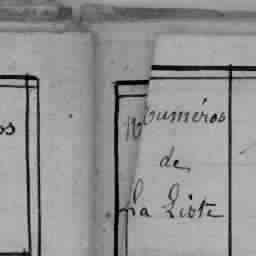 os
Numéros
de
La Liste